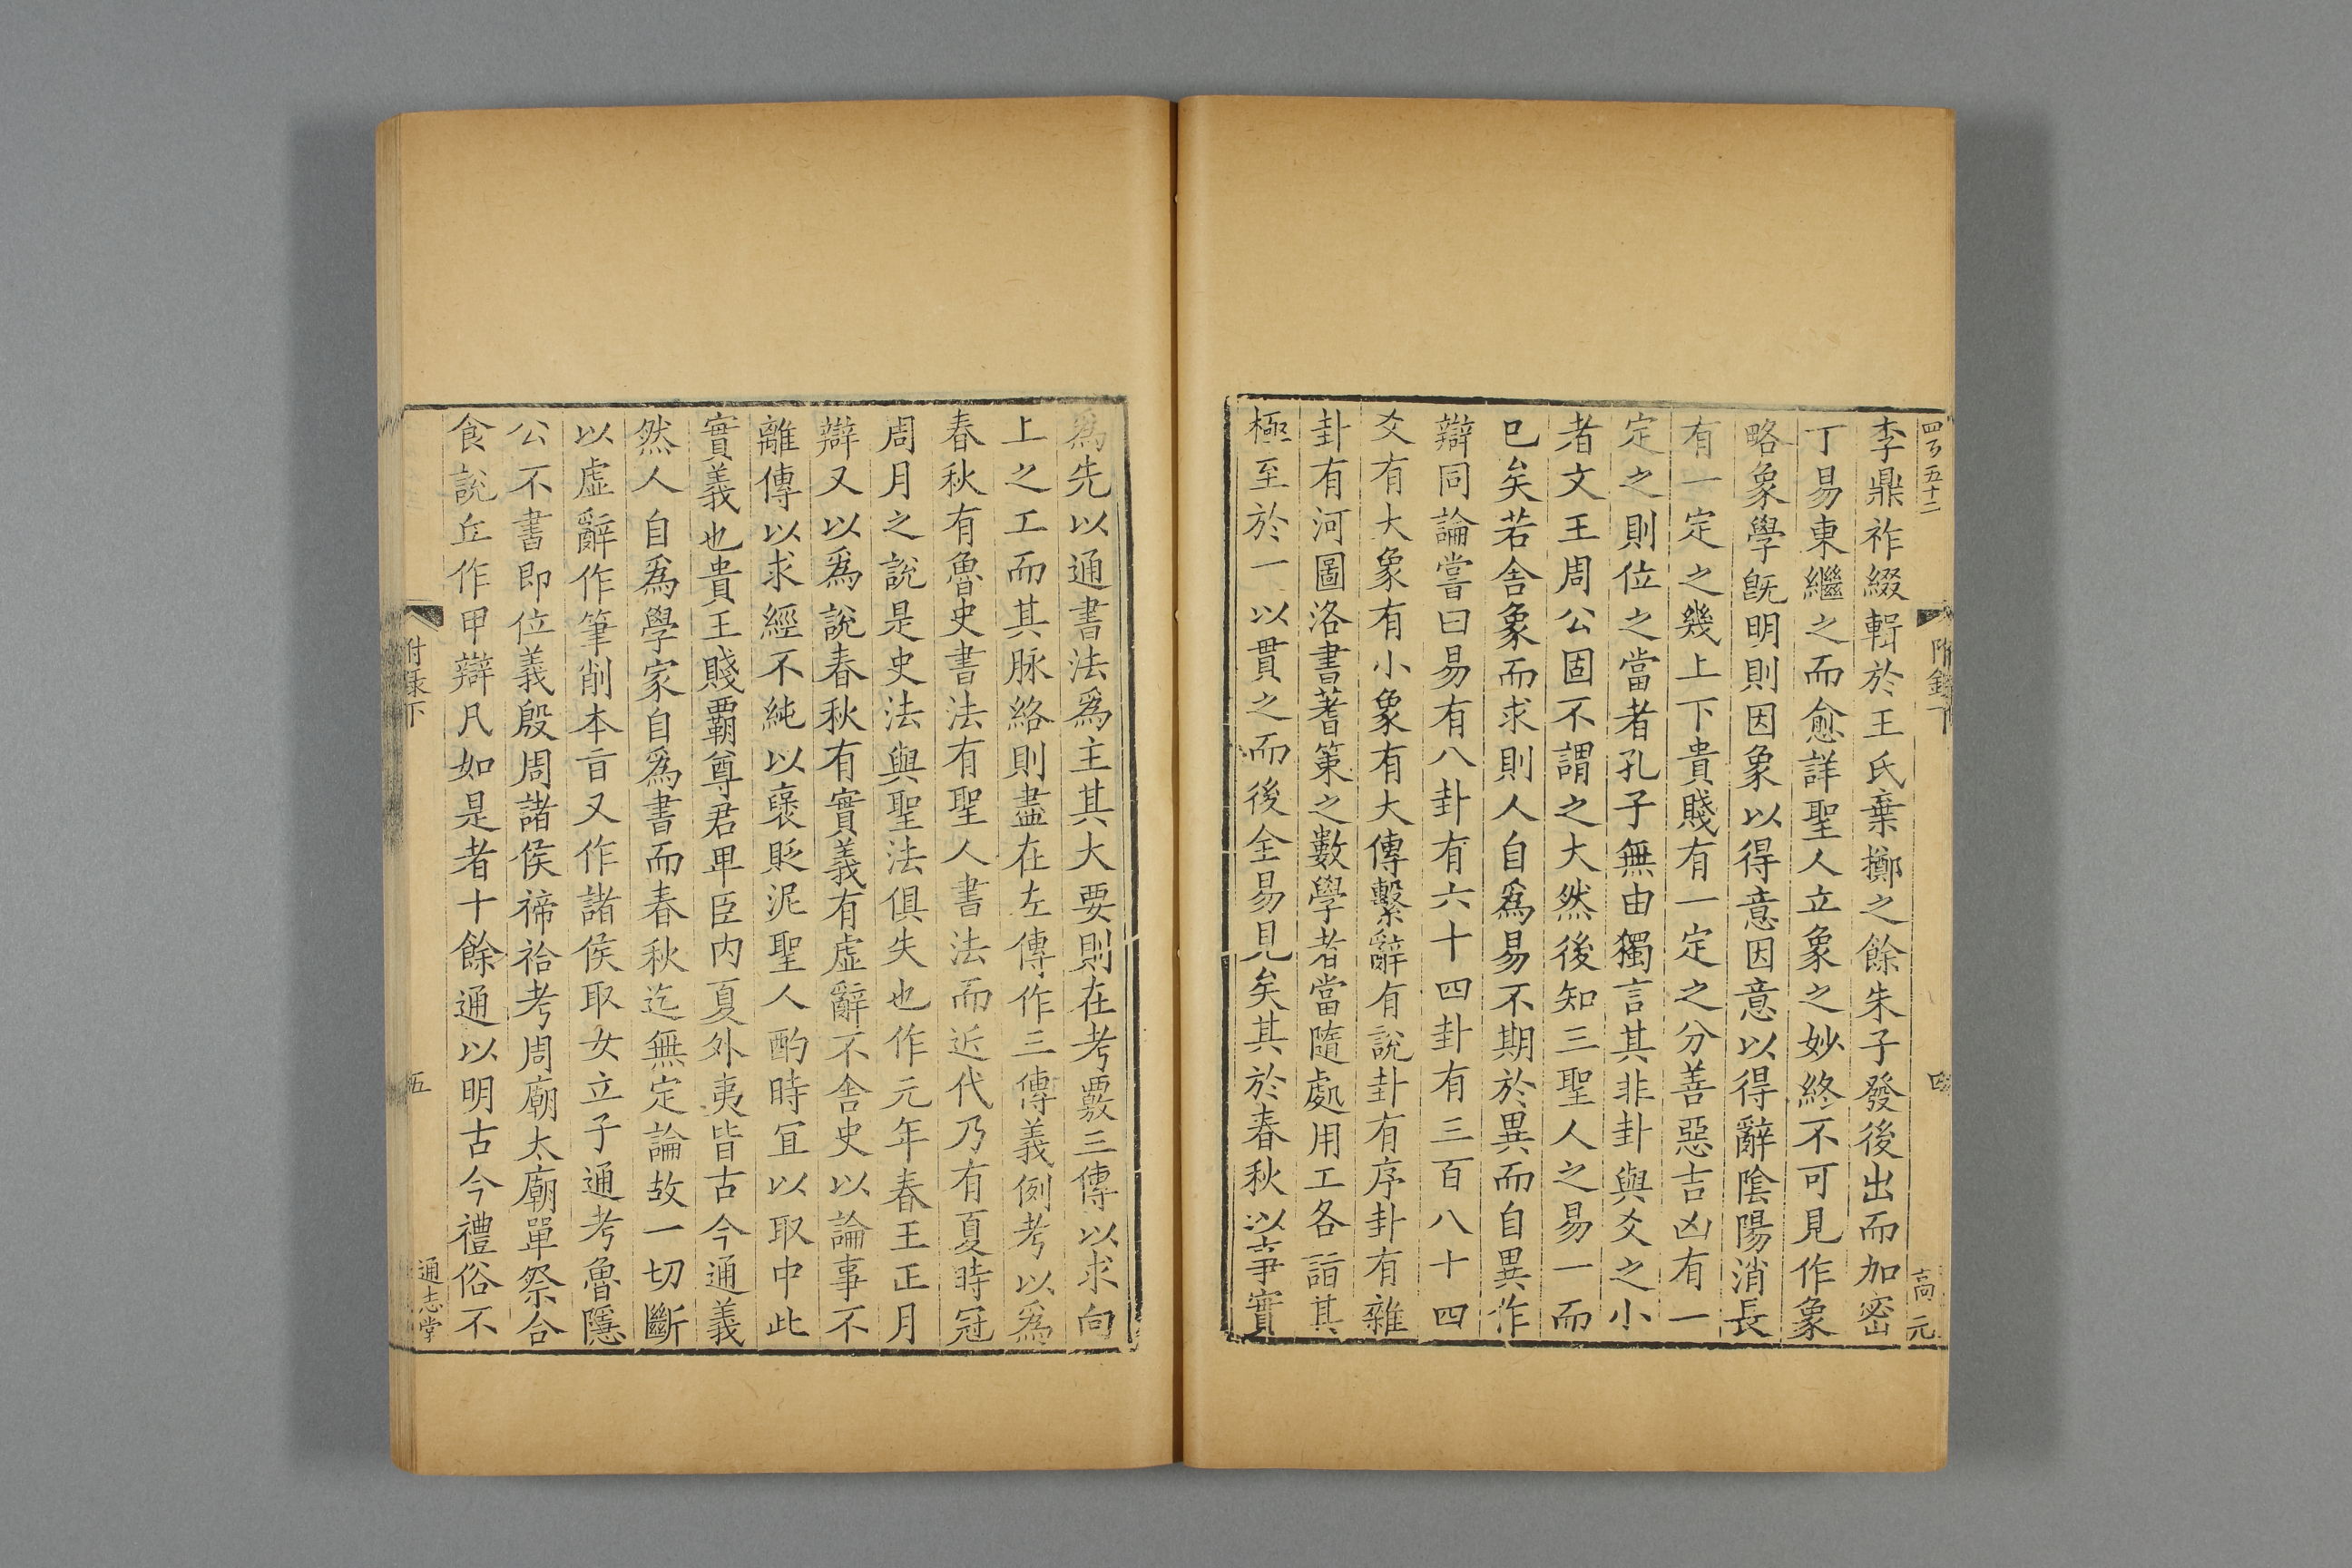 四百五十二
附錄下
四
高元
李鼎祚綴輯於王氏棄擲之餘朱子發後出而加密
丁易東繼之而愈詳聖人立象之妙終不可見作象
略象學旣明則因象以得意因意以得辭陰陽消長
有一定之幾上下貴賤有一定之分善惡吉凶有一
定之則位之當者孔子無由獨言其非卦與爻之小
者文王周公固不謂之大然後知三聖人之易一而
已矣若舍象而求則人自爲易不期於異而自異作
辯同論嘗曰易有八卦有六十四卦有三百八十四
爻有大象有小象有大傳繫辭有說卦有序卦有雜
卦有河圖洛書蓍䇿之數學者當隨處用工各詣其
極至於一以貫之而後全易見矣其於春秋以事實
爲先以通書法爲主其大要則在考覈三傳以求向
上之工而其脉絡則盡在左傳作三傳義例考以爲
春秋有魯史書法有聖人書法而近代乃有夏時冠
周月之說是史法與聖法俱失也作元年春王正月
辯又以爲說春秋有實義有虛辭不舍史以論事不
離傳以求經不純以襃貶泥聖人酌時宜以取中此
實義也貴王賤覇尊君卑臣内夏外夷皆古今通義
然人自爲學家自爲書而春秋迄無定論故一切斷
以虛辭作筆削本㫖又作諸侯取女立子通考魯隱
公不書即位義殷周諸侯禘祫考周廟太廟單祭合
食說丘作甲辯凡如是者十餘通以明古今禮俗不
附錄下
五
通志堂